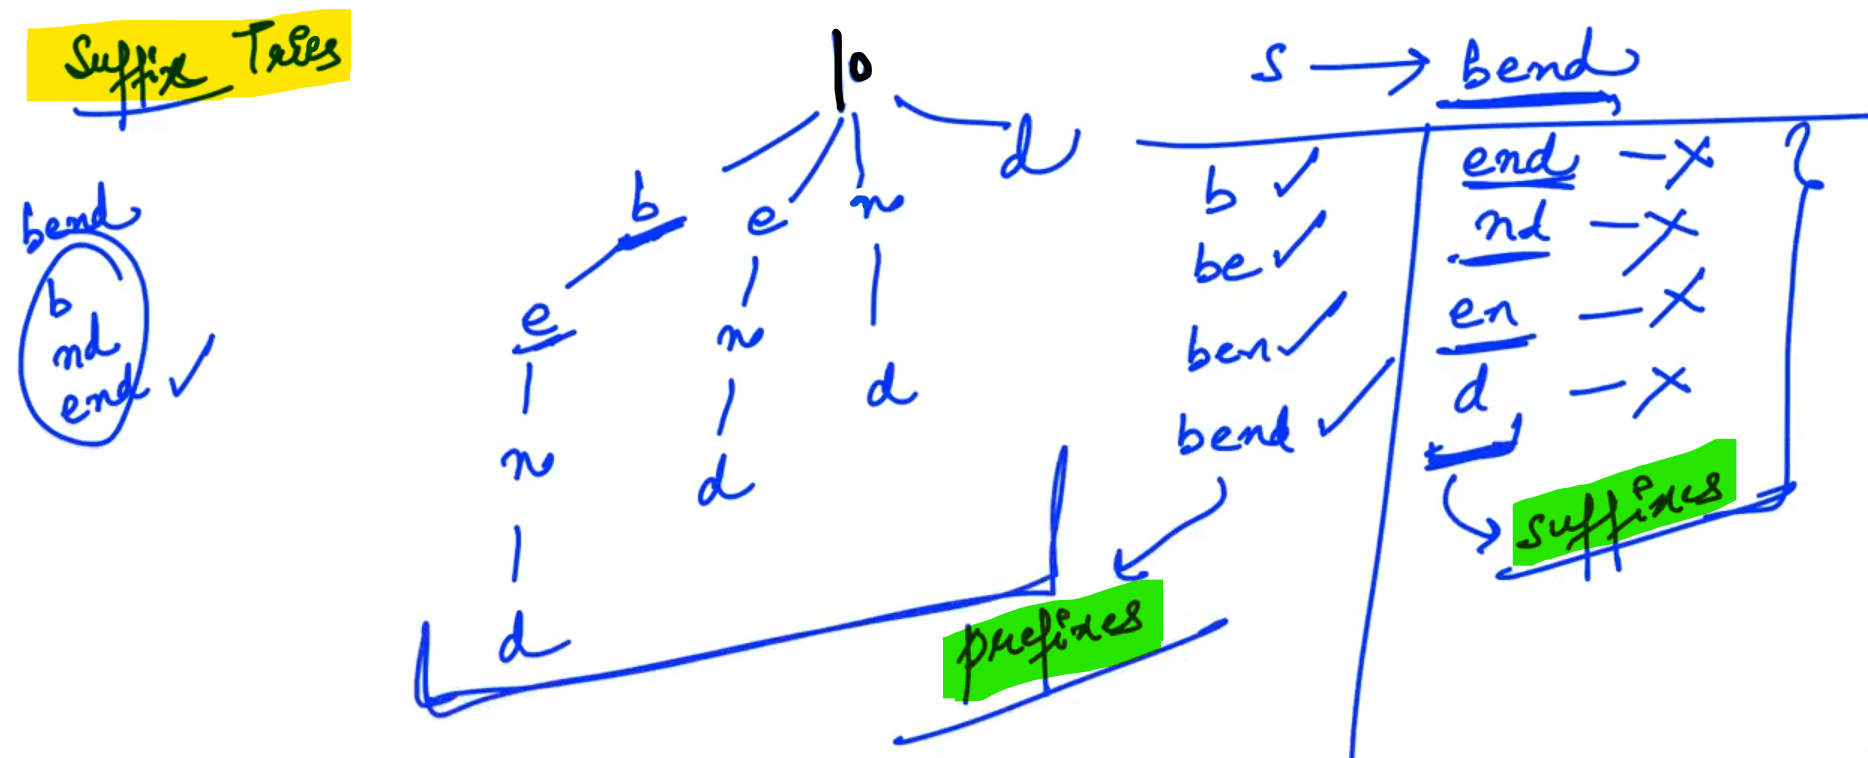 Suffix Tries
bend
b
nd
end ✓
10
b e n d
e n d
n d
d
s → bend
b ✓
be ✓
ben ✓
bend ✓
prefixes
end - x
nd - x
en - x
d - x
suffixes